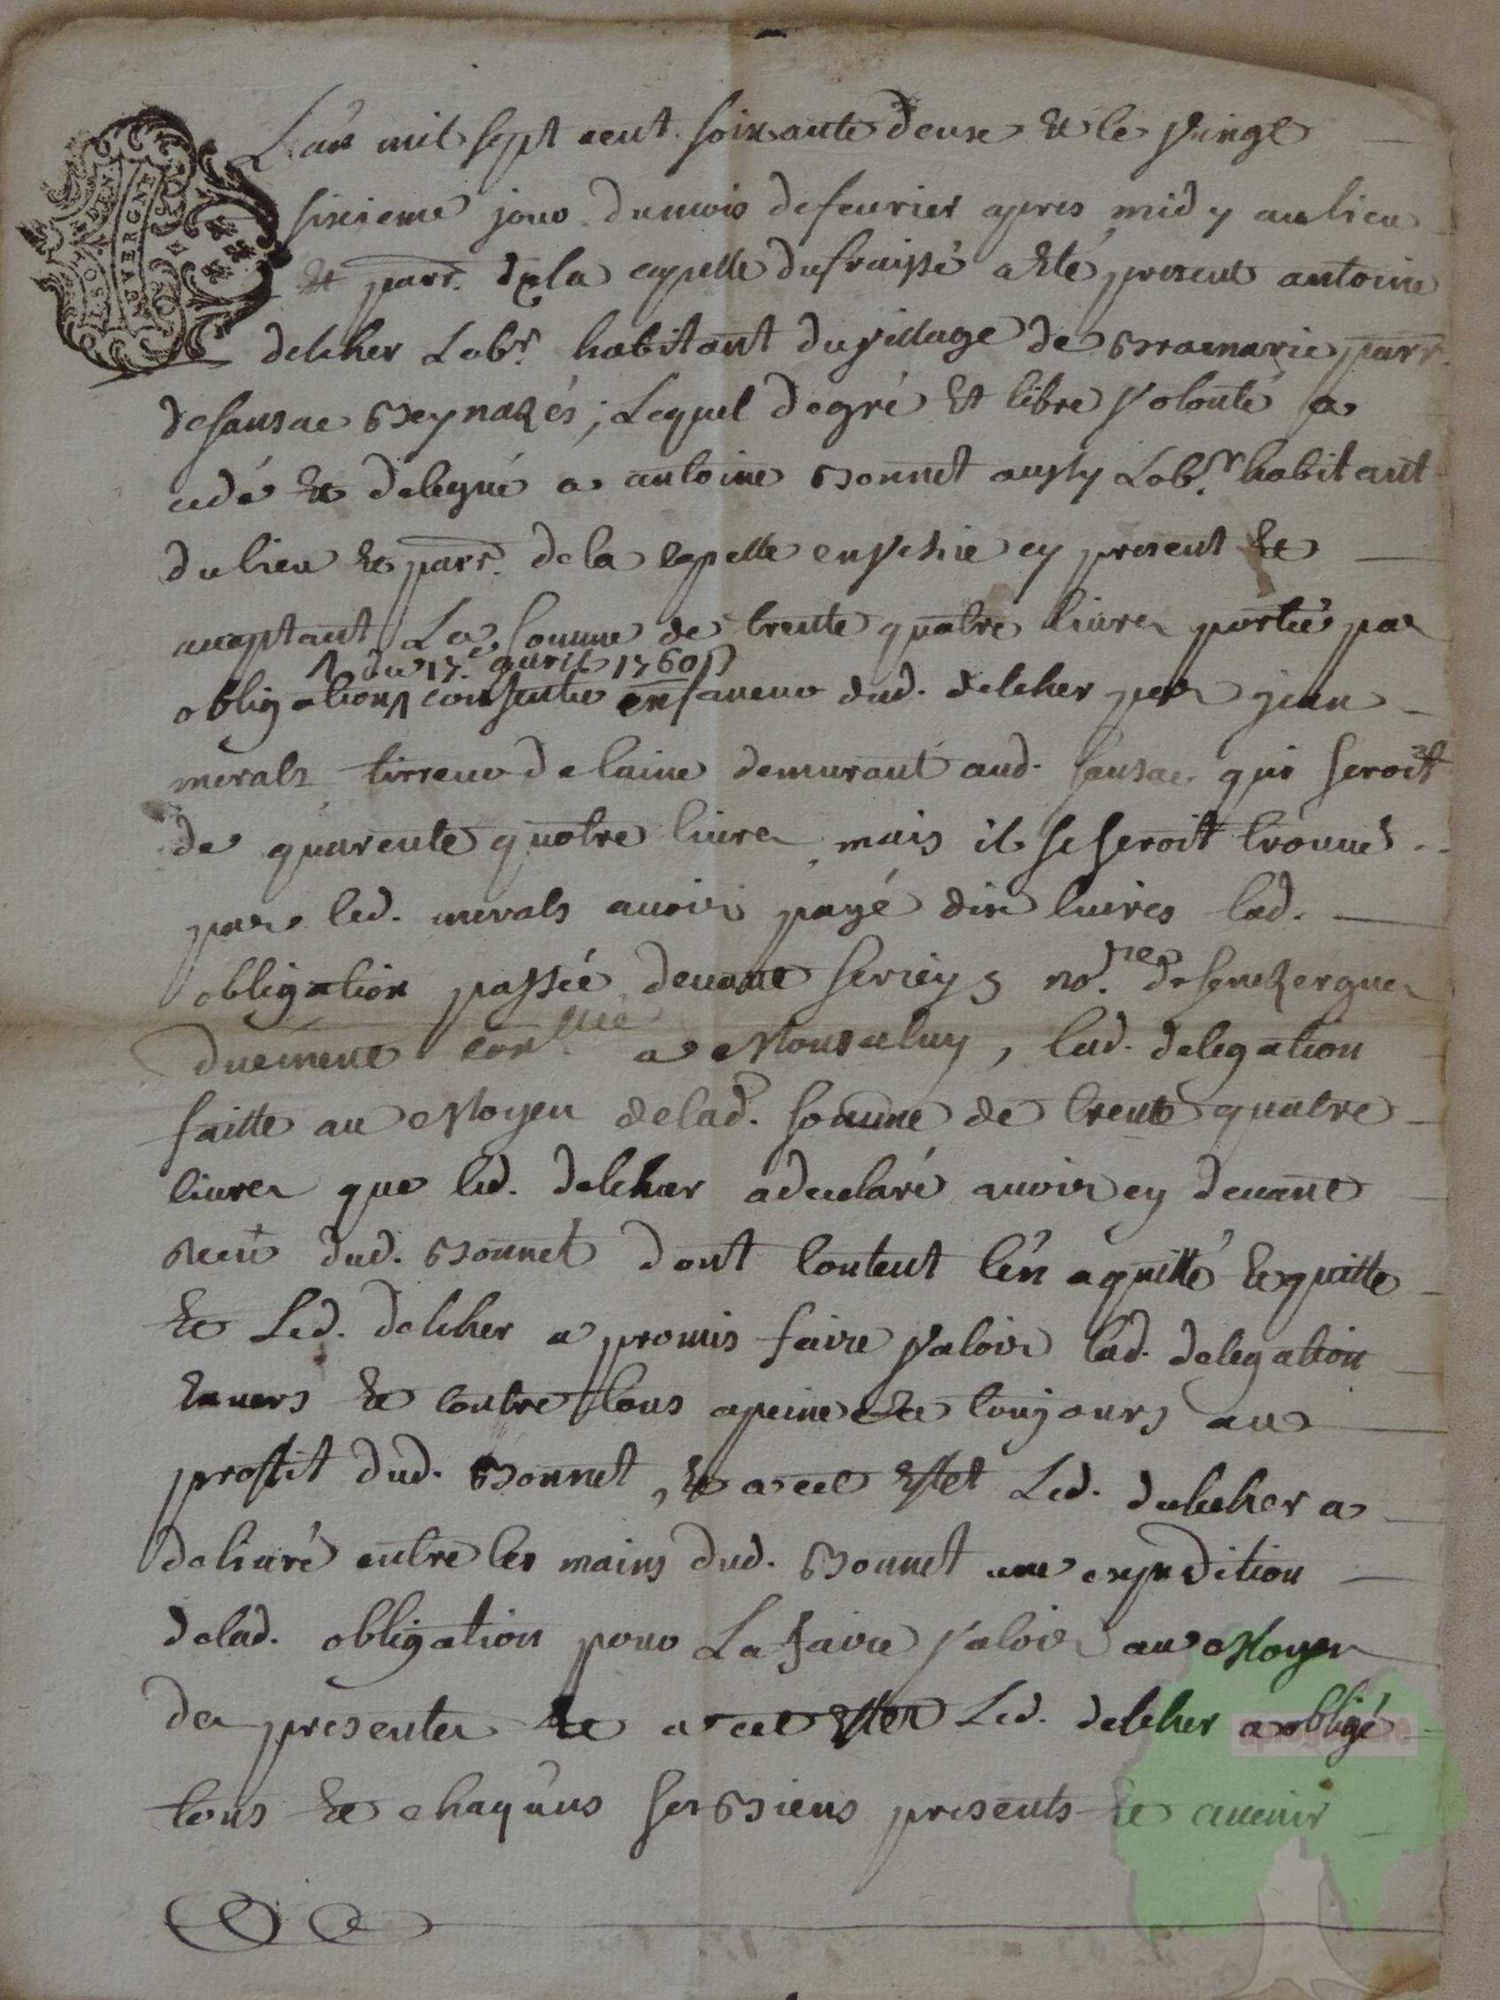 L'an mil sept cent soixante deux et le vingt
sixieme jour du mois de fevrier apres midy au lieu
et parr. de la capelle du fraisse a eté present antoine
delcher Labr. habitant du village de parr.
de sansac Veynazés ; Lequel de gré et libre volonté a
cedé et delegué a antoine Bonnet aussy Labr. habitant
du lieu et parr. de la capelle en vezie cy present et
acceptant La somme de trente quatre livres portée par
du 17e. avril 1760
obligation consentie en faveur dud. delcher par jean
merals tireur de laine demurant aud. sansac qui seroit
de quarente quatre livres mais il se seroit trouvé
par led. merals avoir payé dix livres lad.
obligation passée devant serieys nore. de senezergues
duement conllée a Monsalvy, lad. delegation
faitte au Moyen de lad. somme de trente quatre
livres que led. delcher a declaré avoir cy devant
receu dud. Bonnet dont content l'en a quitté et quitte
et Led. delcher a promis faire valoir lad. delegation
envers et contre tous a peine et toujours au
proffit dud. Bonnet, et a cet effet Led. delcher a
delivré entre les mains dud. Bonnet une expedition
de lad. obligation pour La faire valoir au Moyen
des presentes et a cet effet Led. delcher a obligé
tous et chaquns ses Biens presents et avenir
GEN. D'AUVERGNE